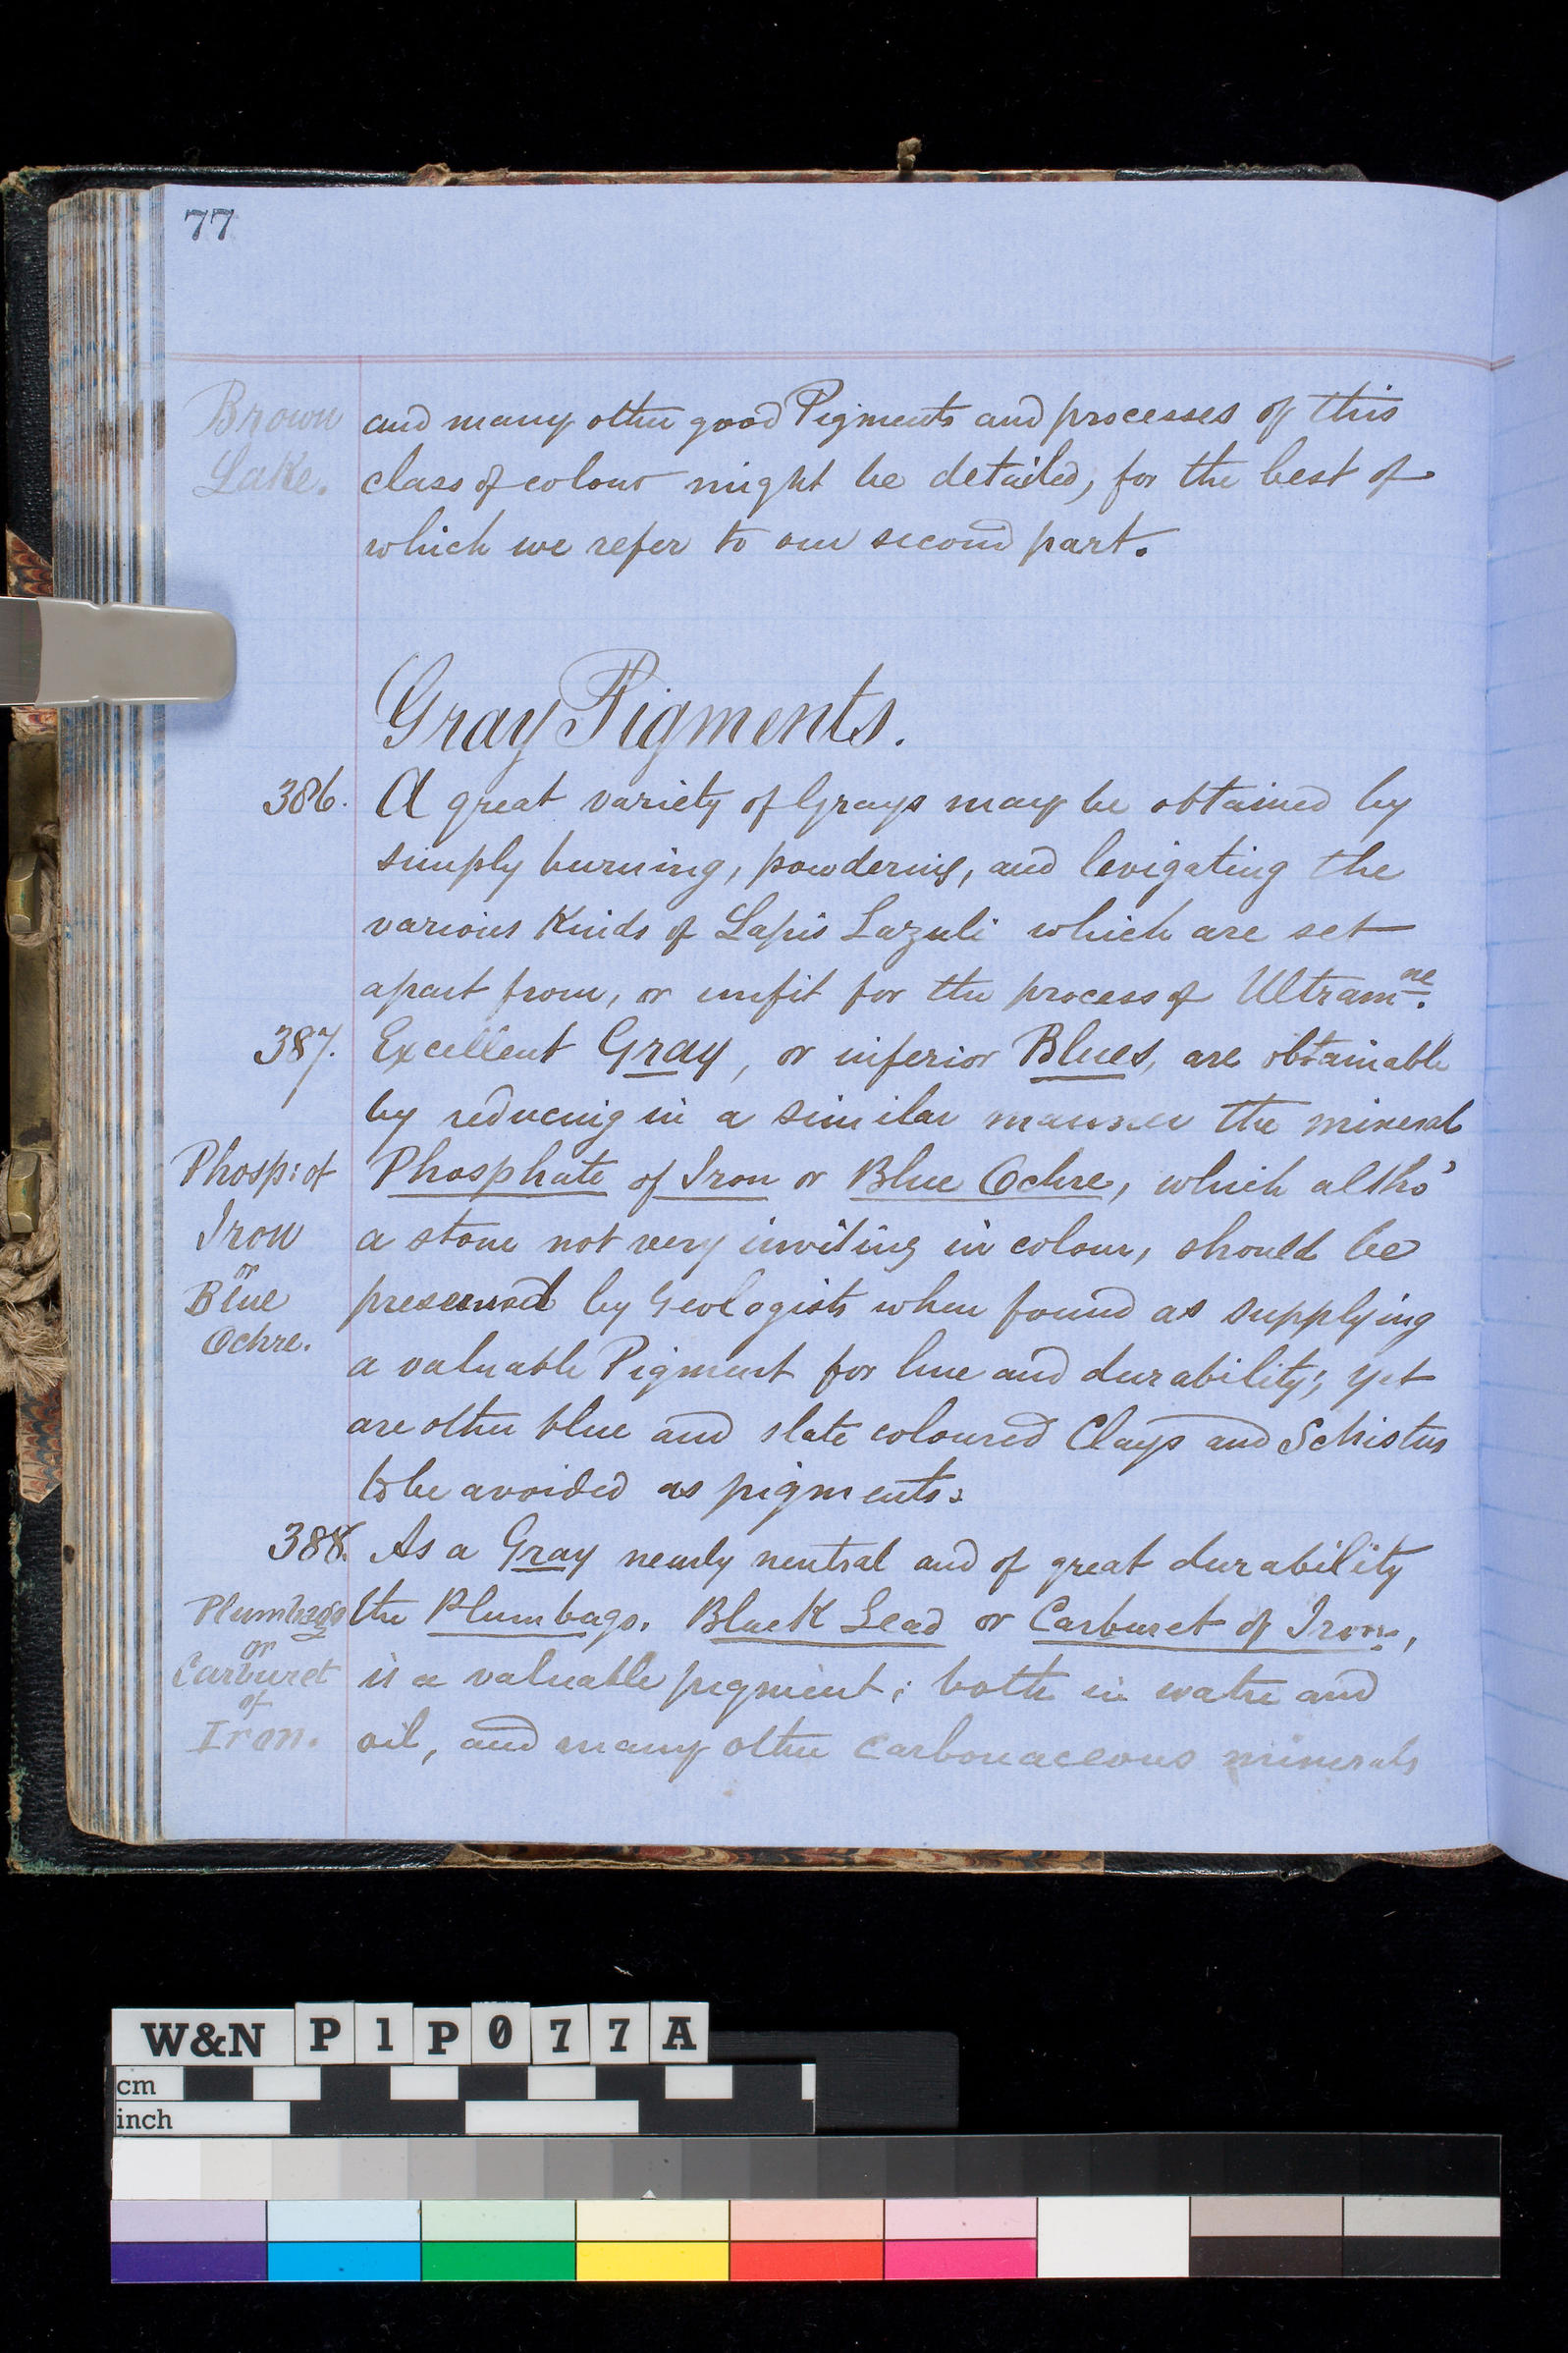 77
Brown
Lake.
and many other good Pigments and processes of this
class of colour might be detailed, for the best of
which we refer to our second part.
Gray Pigments.
386. A great variety of Grays may be obtained by
simply burning, powdering, and levigating the
various Kinds of Lapis Lazuli which are set
apart from, or unfit for the process of Ultramne.
387. Excellent Gray, or inferior Blues, are obtainable
by reducing in a similar manner the mineral
Phosp: of
Iron
or
Blue
Ochre.
Phosphate of Iron or Blue Ochre, which altho'
a stone not very inviting in colour, should be
preserved by Geologists when found as supplying
a valuable Pigment for hue and durability; yet
are other blue and slate coloured Clays and Schistus
to be avoided as pigments.
388. As a Gray nearly neutral and of great durability
Plumbago
or
Carburet
of
Iron.
the Plumbago. Black Lead or Carburet of Iron,
is a valuable pigment; both in water and
oil, and many other carbonaceous minerals
W&N P1P077A
cm
inch